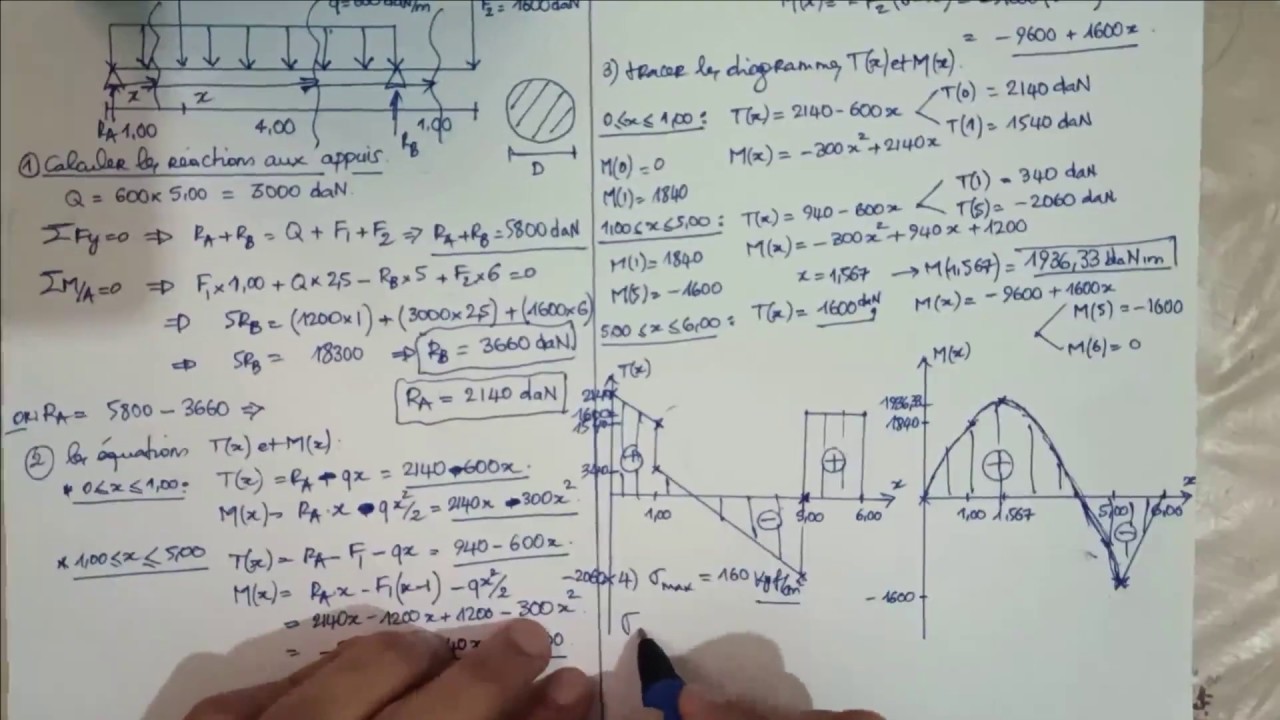 q=600daN/m
F₂ = 1600daN
x
x
R_A 1,00
4,00
1,00
R_B
D
① Calculer les réactions aux appuis.
Q = 600x 5,00 = 3000 daN.
ΣFy=0 ⇒ R_A+R_B = Q + F₁+F₂ ⇒ R_A+R_B=5800daN
ΣM/A=0 ⇒ F₁x1,00 + Qx2,5 - R_Bx5 + F₂x6=0
⇒ 5R_B = (1200x1) + (3000x2,5) + (1600x6)
⇒ 5R_B = 18300 ⇒ R_B = 3660 daN
R_A = 2140 daN
or: R_A = 5800 - 3660 ⇒
② les équations T(x) et M(x).
* 0≤x≤1,00: T(x) = R_A - qx = 2140-600x.
M(x) = R_A.x - qx²/2 = 2140x - 300x²
* 1,00≤x≤5,00 T(x) = R_A - F₁ - qx = 940-600x.
M(x) = R_A.x - F₁(x-1) - qx²/2
= 2140x - 1200x + 1200 - 300x²
= - 9600 + 1600x.
3) tracer les diagrammes T(x) et M(x).
0≤x≤1,00: T(x) = 2140-600x
T(0) = 2140 daN
T(1) = 1540 daN
M(0) = 0
M(x) = -300x²+2140x
M(1) = 1840
1,00≤x≤5,00: T(x) = 940-600x
T(1) = 340 daN
T(5) = -2060 daN
M(x) = -300x²+940x+1200
M(1) = 1840
x = 1,567 → M(1,567) = 1936,33 daN.m
M(5) = -1600
5,00≤x≤6,00: T(x) = 1600daN.
M(x) = -9600+1600x
M(5) = -1600
M(6) = 0
T(x)
2140
1600
1540
340
+
-
+
x
1,00
5,00
6,00
-2060
M(x)
1936,33
1840
+
-
x
1,00
1,567
5,00
6,00
-1600
4) σmax = 160 kgf/cm²
σ